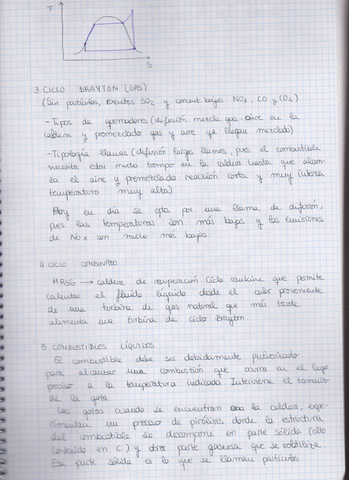 T
S
3. CICLO BRAYTON (GAS)
(Sin partículas, Exentos SO2 y concent. bajas NOx, CO y CO2)
- Tipos de quemadores (difusión mezcla gas-aire en la
caldera y premezclado gas y aire ya llegan mezclado)
- Tipología llamas (difusión largas llamas, pues el combustible
necesita estar mucho tiempo en la caldera hasta que alcan-
za el aire y premezclada reacción corta y muy intensa
temperatura muy alta)
Hoy en día se opta por una llama de difusión,
pues las temperaturas son más bajas y las emisiones
de NOx son mucho más bajas
4. CICLO COMBINADO
HRSG → caldera de recuperación. Ciclo rankine que permite
calentar el fluido líquido desde el calor proveniente
de una turbina de gas natural que más tarde
alimenta una turbina de ciclo Brayton.
5. COMBUSTIBLES LÍQUIDOS
El combustible debe ser debidamente pulverizado
para alcanzar una combustión que ocurra en el lugar
preciso a la temperatura indicada. Interviene el tamaño
de la gota
Las gotas cuando se encuentran la caldera, expe-
rimentan un proceso de pirólisis donde la estructura
del combustible se descompone en parte sólida (alto
contenido en C) y otra parte gaseosa que se volatiliza
Esa parte sólida es lo que se llaman partículas.